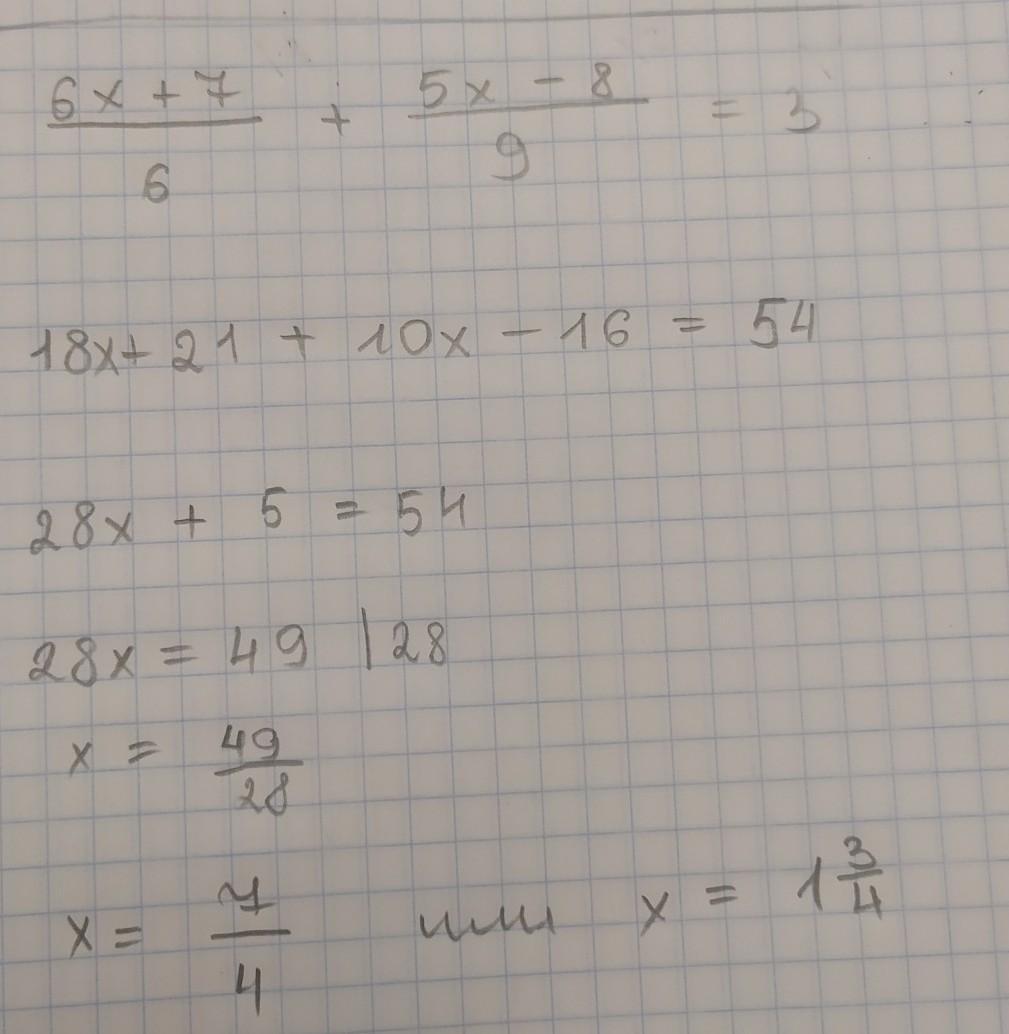 (6x + 7)/6 + (5x - 8)/9 = 3
18x + 21 + 10x - 16 = 54
28x + 5 = 54
28x = 49 | 28
x = 49/28
x = 7/4 или x = 1 3/4